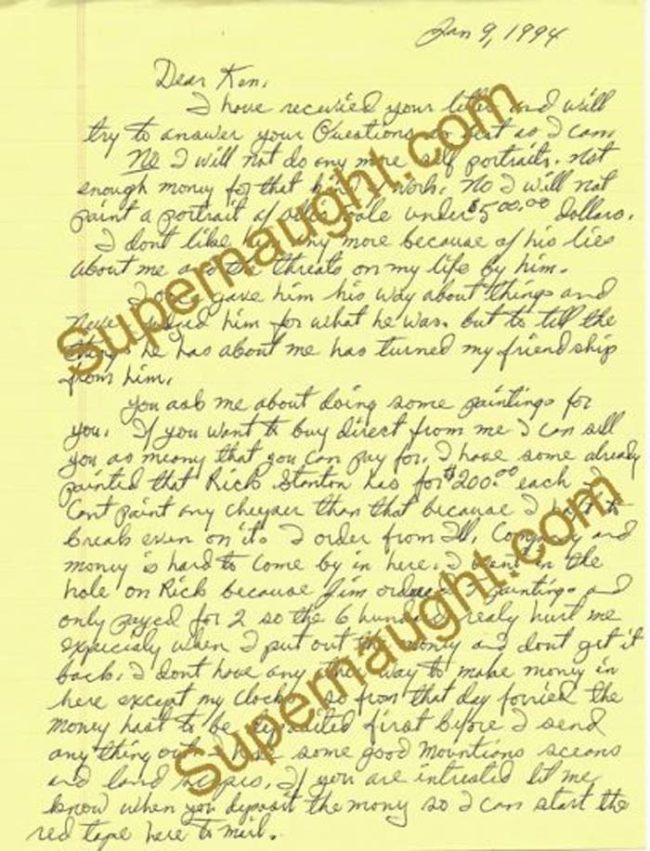 Jan 9, 1994
Dear Ken,
I have recuried your letter and will
try to answer your Questions as best as I can.
No I will not do any more self portraits. not
enough money for that kind of work. No I will not
paint a portrait of under $500.00 Dollars.
I dont like him any more because of his lies
about me and the threats on my life by him.
I gave him his way about things and
never him for what he was. but to tell the
things he has about me has turned my friendship
from him.
you ask me about doing some paintings for
you. If you want to buy direct from me I can sell
you as meony that you can pay for. I have some already
painted that Rick Stanton has for $200.00 each I
cant paint any cheyser than that because I have to
break even on it. I order from Ill. Company and
money is hard to come by in here. I went in the
hole on Rick because Jim ordered paintings and
only payed for 2 so the 6 hundred realy hurt me
expecialy when I put out the money and dont get it
back. I dont have any other way to make money in
here except my clocks. so from that day forried the
money hast to be deposited first before I send
any thing out. I have some good mountions sceans
and land scapes. If you are intrested let me
know when you deposit the mony so I can start the
red tape here to mail.
Supernaught.com
Supernaught.com